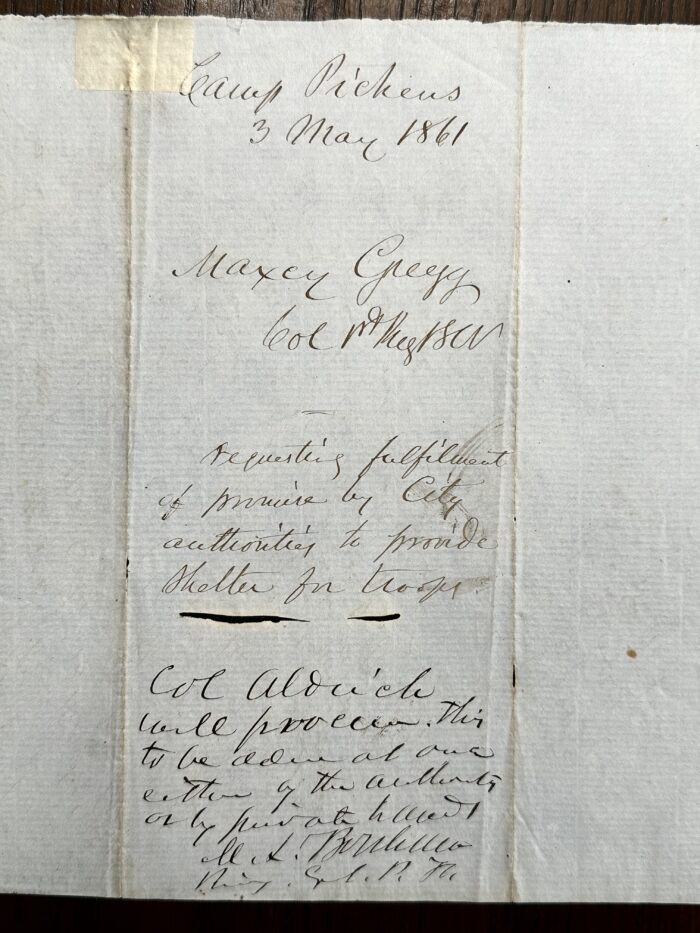 Camp Pickens
3 May 1861
Maxcy Gregg
Col 1st Reg SCV
requesting fulfilment
of promise by City
authorities to provide
shelter for troops.
Col Aldrich
will procure this
to be done at once
either by the authority
or by private hands
M. L. Bonham
Brig. Genl. P. F.